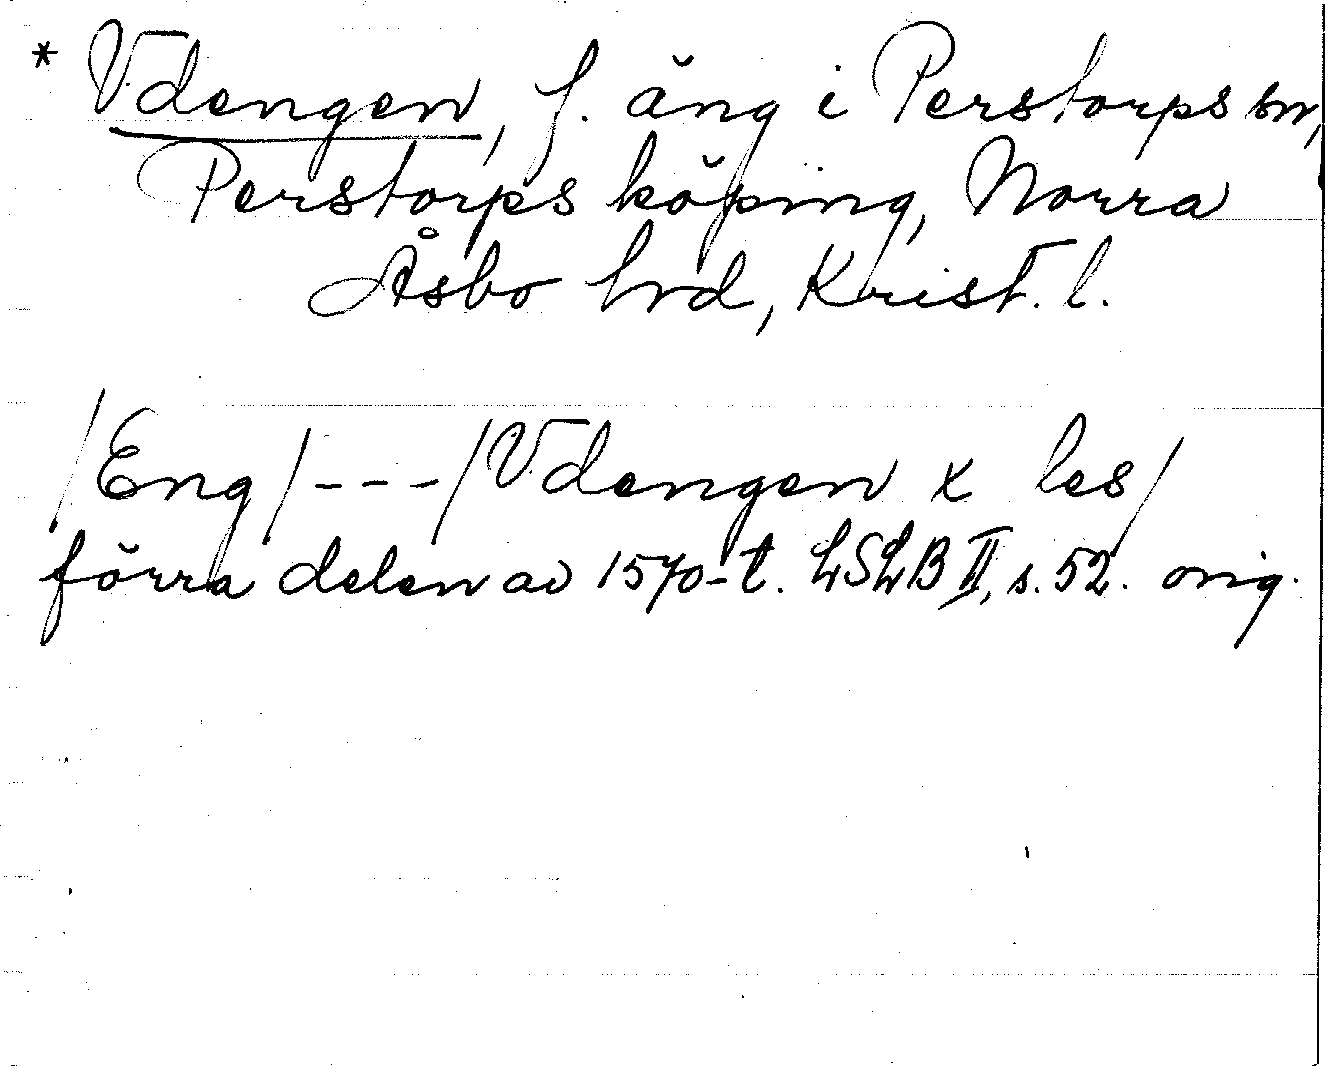 * Vdengen, f. äng i Perstorps sn,
Perstorps köping, Norra
Åsbo hrd, Krist. l.
/Eng/---/Vdengen x les/
förra delen av 1570-t. LSLB II, s. 52. orig.